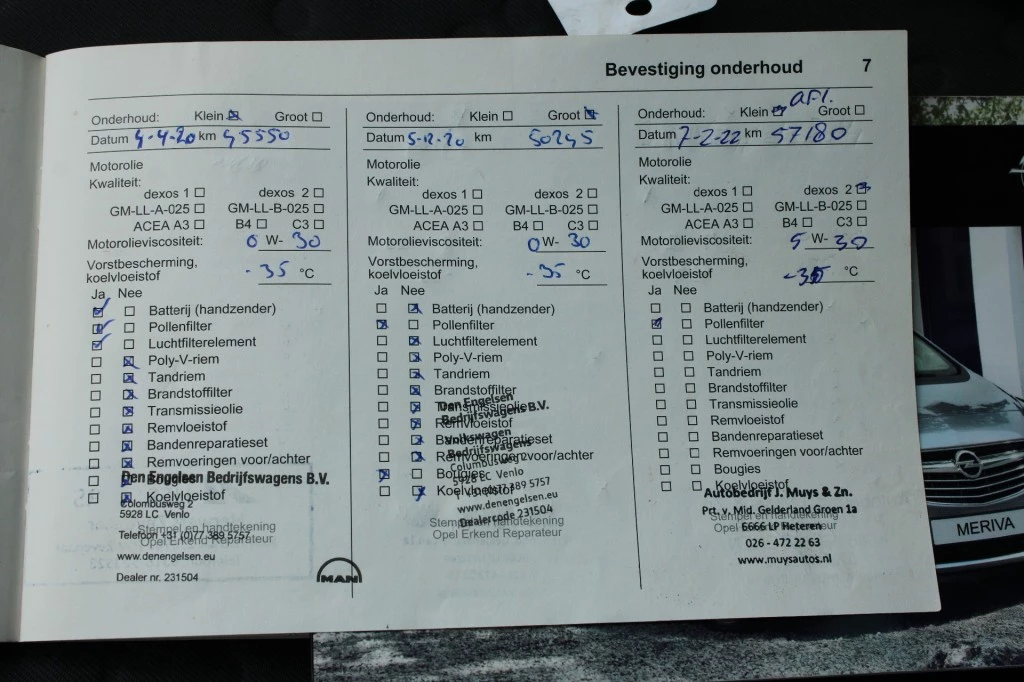 Bevestiging onderhoud 7
Onderhoud: Klein Groot
Datum 4-4-20 km 45550
Motorolie
Kwaliteit:
dexos 1 dexos 2
GM-LL-A-025 GM-LL-B-025
ACEA A3 B4 C3
Motorolieviscositeit: 0 W- 30
Vorstbescherming,
koelvloeistof -35 °C
Ja Nee
Batterij (handzender)
Pollenfilter
Luchtfilterelement
Poly-V-riem
Tandriem
Brandstoffilter
Transmissieolie
Remvloeistof
Bandenreparatieset
Remvoeringen voor/achter
Bougies
Den Engelsen Bedrijfswagens B.V.
Koelvloeistof
Columbusweg 2
5928 LC Venlo
Stempel en handtekening
Telefoon +31 (0)77 389 5757
Opel Erkend Reparateur
www.denengelsen.eu
Dealer nr. 231504
MAN
Onderhoud: Klein Groot
Datum 5-12-20 km 50245
Motorolie
Kwaliteit:
dexos 1 dexos 2
GM-LL-A-025 GM-LL-B-025
ACEA A3 B4 C3
Motorolieviscositeit: 0 W- 30
Vorstbescherming,
koelvloeistof -35 °C
Ja Nee
Batterij (handzender)
Pollenfilter
Luchtfilterelement
Poly-V-riem
Tandriem
Brandstoffilter
Den Engelsen
Transmissieolie
Bedrijfswagens B.V.
Remvloeistof
Volkswagen
Bandenreparatieset
Bedrijfswagens
Remvoeringen voor/achter
Columbusweg 2
Bougies
5928 LC Venlo
Koelvloeistof
T +31 (0)77 389 5757
www.denengelsen.eu
Dealercode 231504
Stempel en handtekening
Opel Erkend Reparateur
afl.
Onderhoud: Klein Groot
Datum 7-2-22 km 57180
Motorolie
Kwaliteit:
dexos 1 dexos 2
GM-LL-A-025 GM-LL-B-025
ACEA A3 B4 C3
Motorolieviscositeit: 5 W- 30
Vorstbescherming,
koelvloeistof -35 °C
Ja Nee
Batterij (handzender)
Pollenfilter
Luchtfilterelement
Poly-V-riem
Tandriem
Brandstoffilter
Transmissieolie
Remvloeistof
Bandenreparatieset
Remvoeringen voor/achter
Bougies
Koelvloeistof
Autobedrijf J. Muys & Zn.
Prt. v. Mid. Gelderland Groen 1a
Stempel en handtekening
6666 LP Heteren
Opel Erkend Reparateur
026 - 472 22 63
www.muysautos.nl
MERIVA